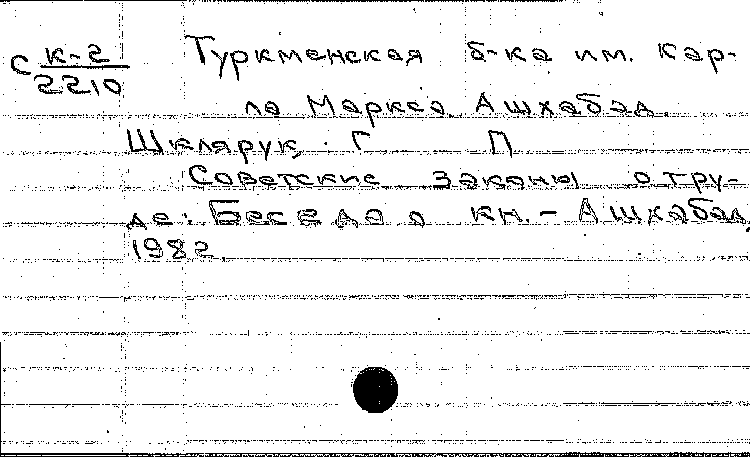 С К-2/2210 Туркменская б-ка им. Кар-
ла Маркса Ашхабад
Шклярук, Г П
Советские законы о тру-
де: Беседа о кн. - Ашхабад,
1982.